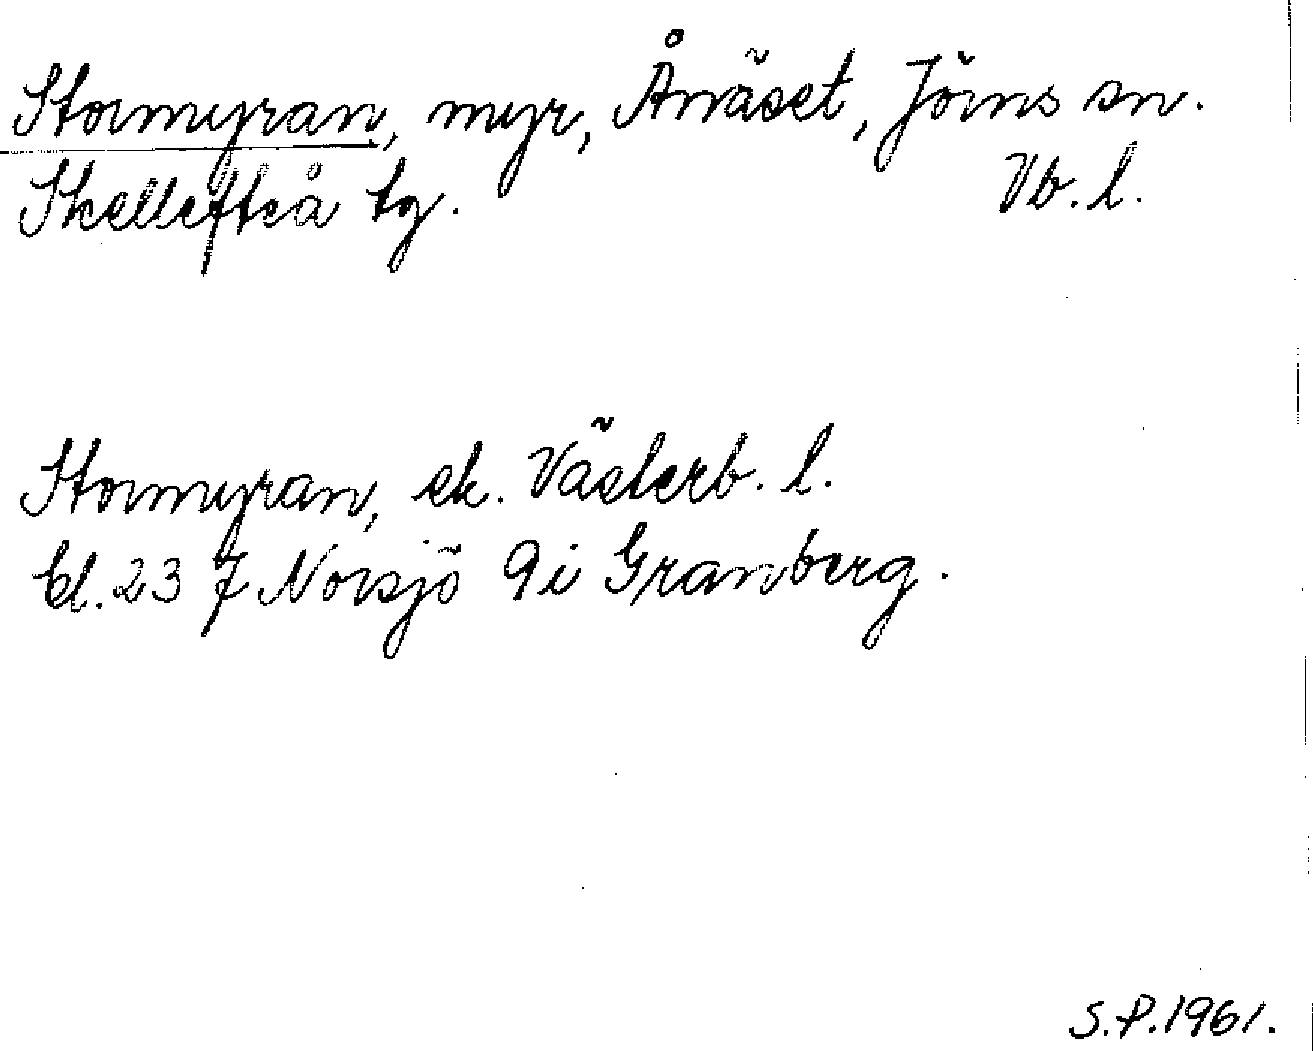 Stormyran, myr, Ånäset, Jörns sn.
Skellefteå tg. Vb. l.
Stormyran, ek. Västerb. l.
bl. 23 J Norsjö 9i Granberg.
S.P. 1961.